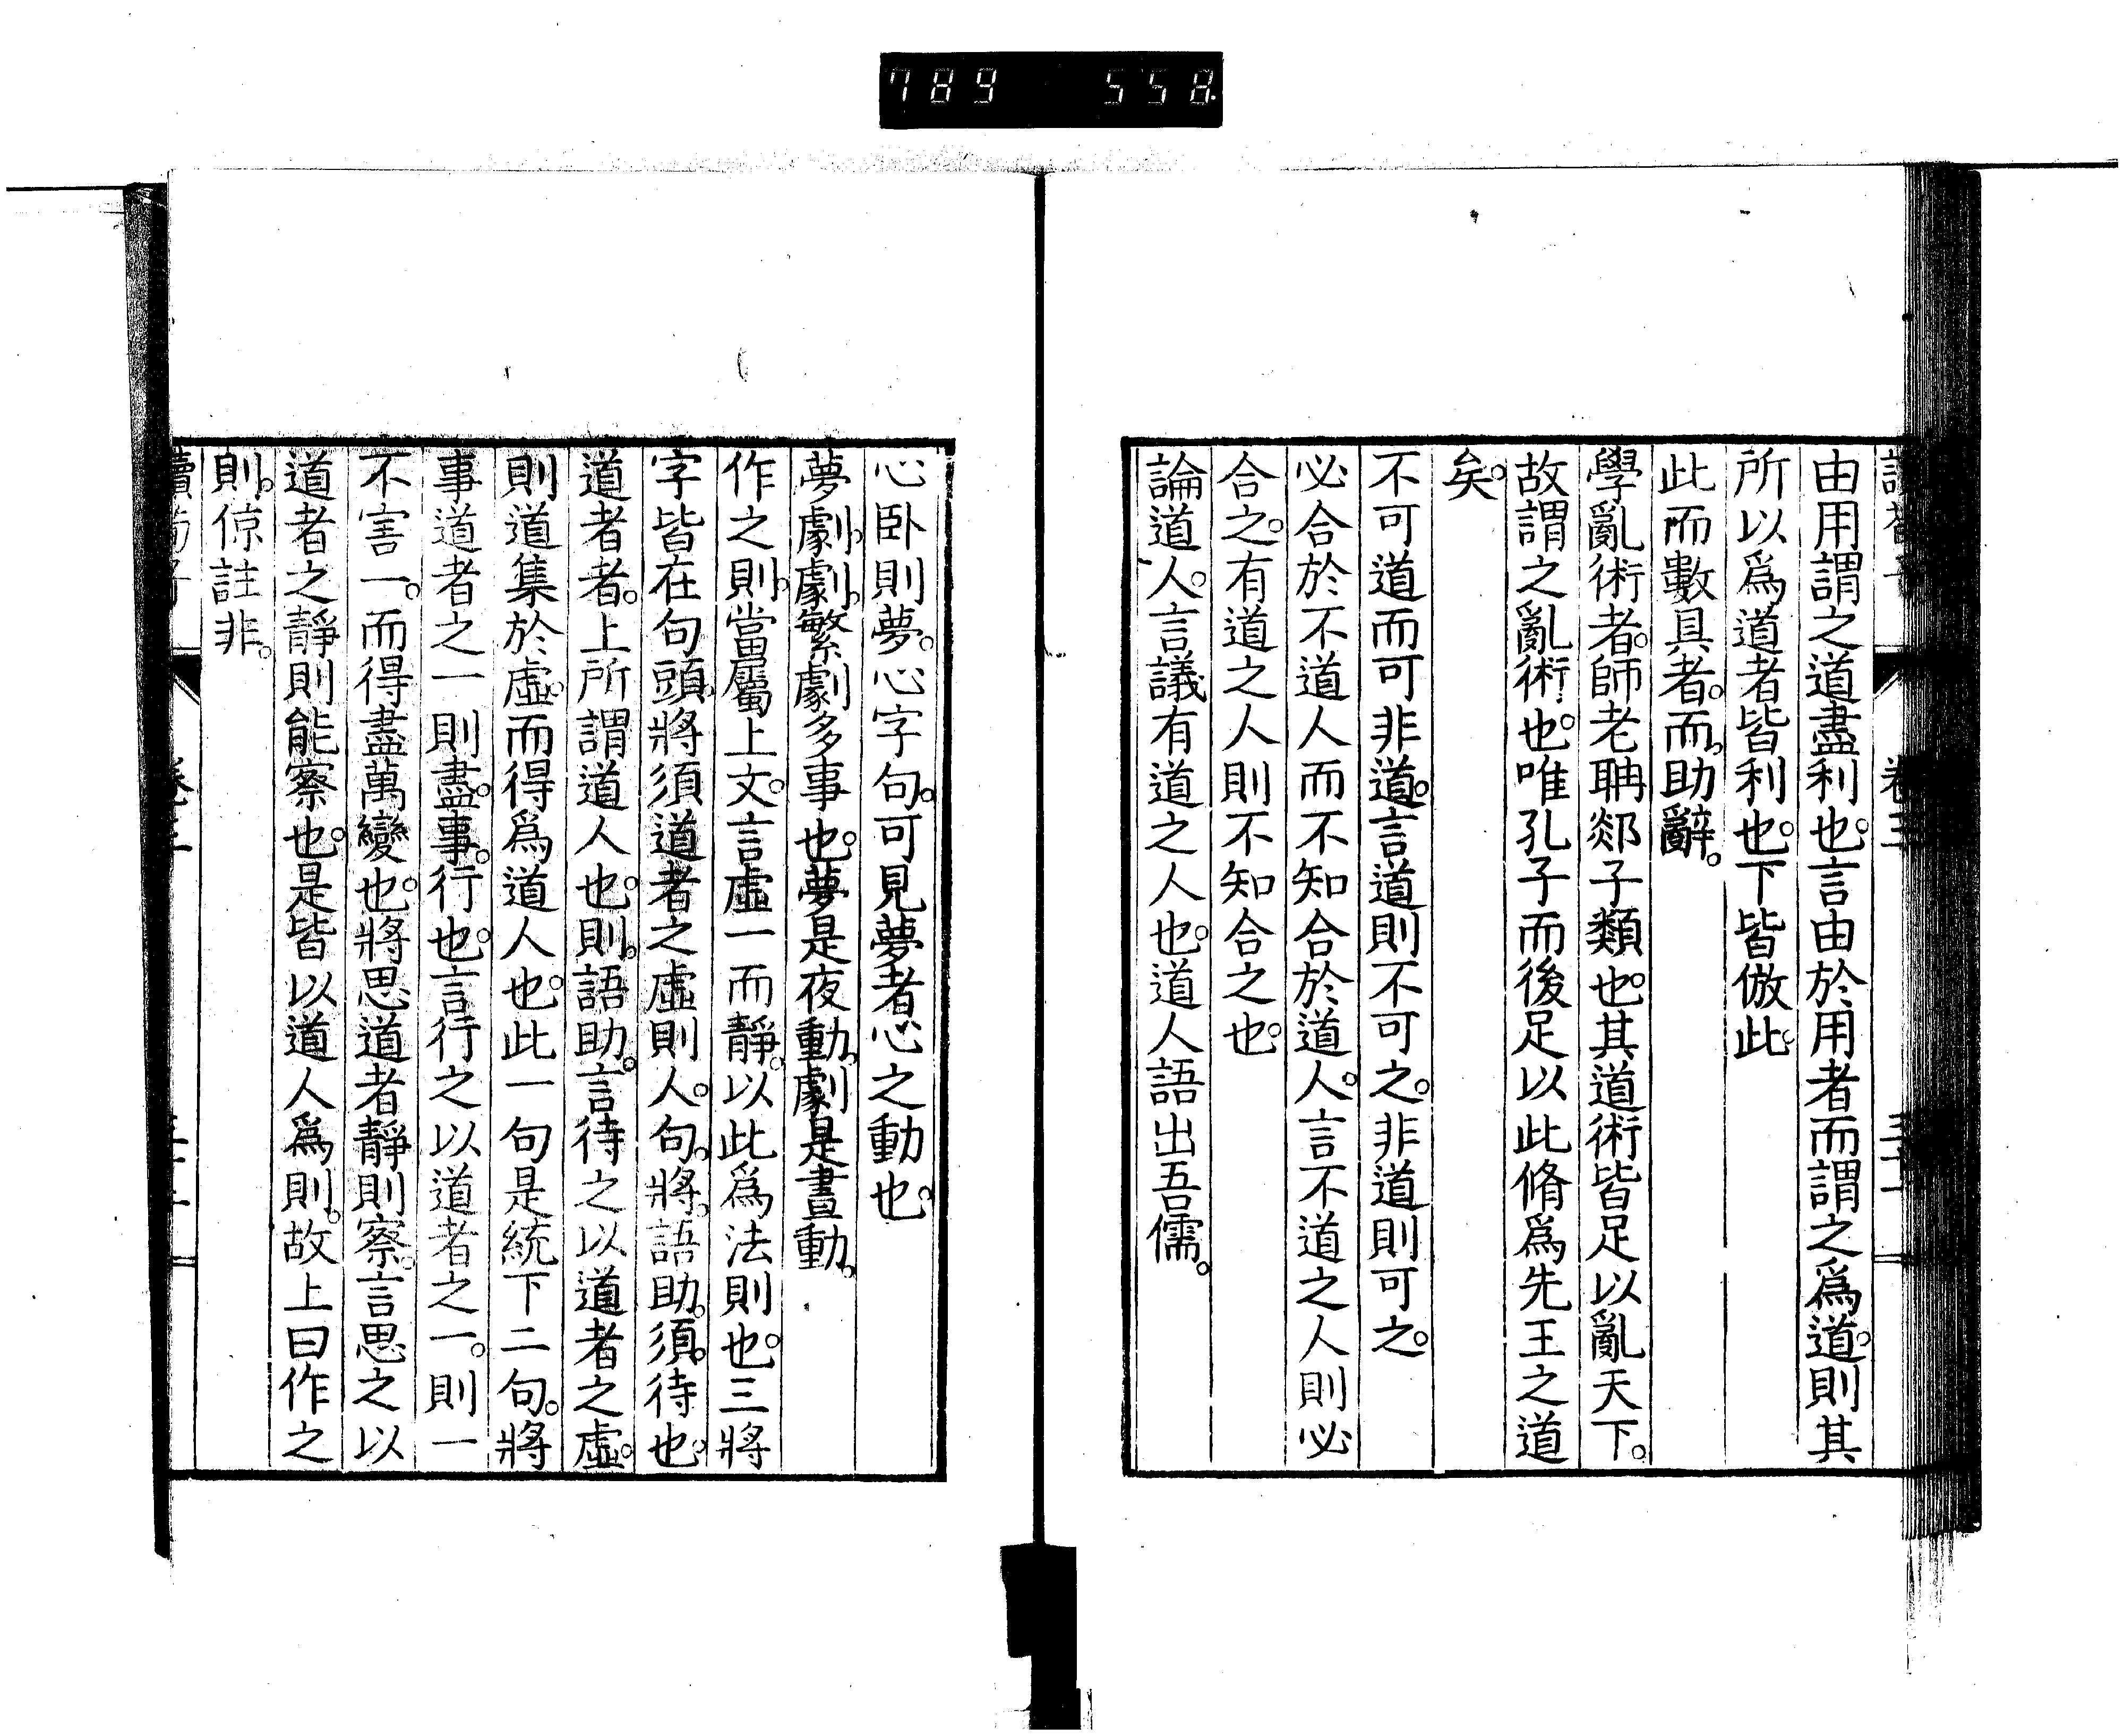 789 558
由用謂之道盡利也。言由於用者而謂之爲道。則其
所以爲道者皆利也。下皆倣此。
此而數具者。而。助辭。
學亂術者。師老聃郯子類也。其道術皆足以亂天下。
故謂之亂術也。唯孔子而後足以此脩爲先王之道
矣。
不可道而可非道。言道則不可之。非道則可之。
必合於不道人而不知合於道人。言不道之人則必
合之。有道之人則不知合之也。
論道人。言議有道之人也。道人語出吾儒。
心卧則夢。心字句。可見夢者心之動也。
夢劇。劇。繁劇多事也。夢是夜動。劇是晝動。
作之則。當屬上文。言虛一而靜。以此爲法則也。三將
字皆在句頭。將須道者之虛則人。句。將。語助。須。待也。
道者者。上所謂道人也。則。語助。言待之以道者之虛。
則道集於虛。而得爲道人也。此一句是統下二句。將
事道者之一則盡。事。行也。言行之以道者之一。則一
不害一。而得盡萬變也。將思道者靜則察。言思之以
道者之靜則能察也。是皆以道人爲則。故上曰作之
則。倞註非。
讀荀子 卷三